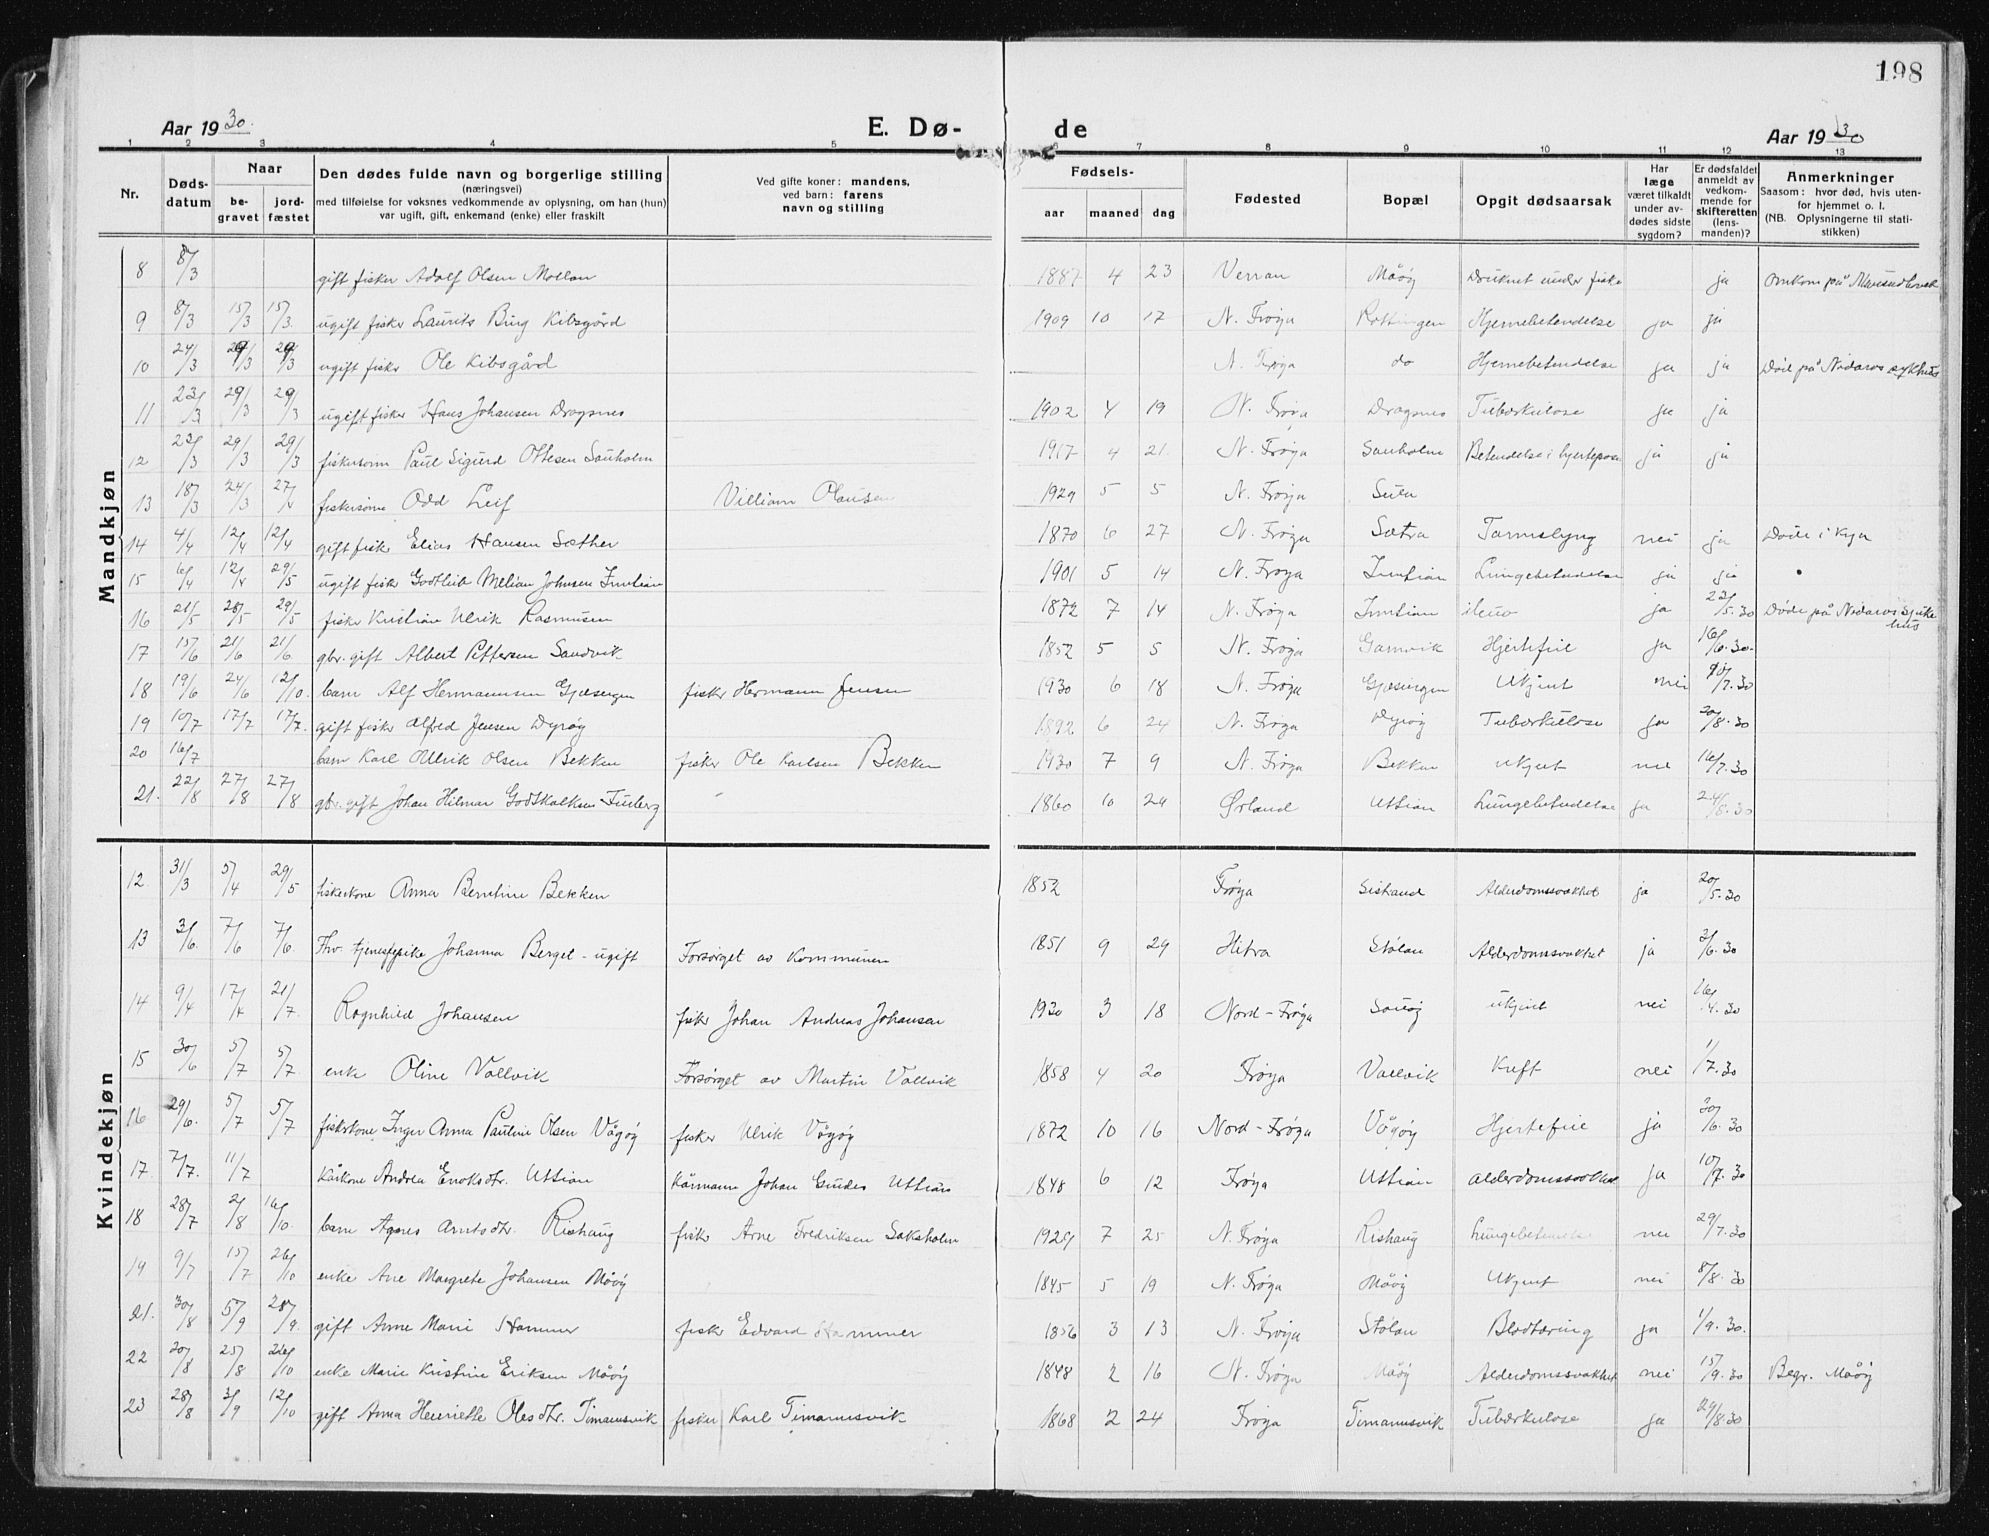 198
Aar 1930. E. Dø- de Aar 1930
1 2 3 4 5 6 7 8 9 10 11 12 13
Nr. Dødsdatum Naar begravet jordfæstet Den dødes fulde navn og borgerlige stilling (næringsvei) med tilføielse for voksnes vedkommende av oplysning, om han (hun) var ugift, gift, enkemand (enke) eller fraskilt Ved gifte koner: mandens, ved barn: farens navn og stilling Fødsels- aar maaned dag Fødested Bopæl Opgit dødsaarsak Har læge været tilkaldt under avdødes sidste sygdom? Er dødsfaldet anmeldt av vedkommende for skifteretten (lensmanden)? Anmerkninger Saasom: hvor død, hvis utenfor hjemmet o. l. (NB. Oplysningerne til statistikken)
Mandkjøn
8 8/3 gift fisker Adolf Olsen Mollan 1887 4 23 Verran Måöy Druknet under fiske ja Omkom på
9 8/3 15/3 15/3 ugift fisker Laurits Bing Kibsgård 1909 10 17 N. Frøya Rottingen Hjernebetendelse ja ja
10 24/3 29/3 29/3 ugift fisker Ole Kibsgård N. Frøya do Hjernebetendelse ja ja Död på Nidaros sykhus
11 23/3 29/3 29/3 ugift fisker Hans Johansen Dragsnes 1902 4 19 N. Frøya Dragsnes Tuberkulose ja ja
12 23/3 29/3 29/3 fiskersønn Paul Sigurd Ottesen Sauholm 1917 4 21 N. Frøya Sauholm Betendelse i hjertepose ja ja
13 18/3 24/3 27/4 fiskersønn Odd Leif Villiam Olausen 1929 5 5 N. Frøya Sula
14 4/4 12/4 12/4 gift fisker Elias Hansen Sæther 1870 6 27 N. Frøya Sætra Tarmslyng nei ja Döde i Kya
15 6/4 12/4 29/5 ugift fisker Godtlieb Melian Johnsen Inntian 1901 5 14 N. Frøya Inntian Lungebetendelse ja ja
16 21/5 28/5 29/5 fisker Kristian Ulrik Rasmusen 1872 7 14 N. Frøya Inntian ileus ja 22/5.30 Døde på Nidaros sykehus
17 15/6 21/6 21/6 gbr. gift Albert Pettersen Sandvik 1852 5 5 N. Frøya Gamvik Hjertefeil ja 16/6.30.
18 19/6 24/6 12/10. barn Alf Hermannsen Gjæsingen fisker Hermann Jensen 1930 6 18 N. Frøya Gjæsingen Ukjent nei /7.30
19 10/7 17/7 17/7. gift fisker Alfred Jensen Dyrøy 1892 6 24 N. Frøya Dyrøy Tuberkulose ja 20/8.30
20 16/7 barn Karl Ollrik Olsen Bekken fisker Ole Karlsen Bekken 1930 7 9 N. Frøya Bekken ukjent nei 16/7.30
21. 22/8 27/8 27/8 gbr. gift Johan Hilmar Godtskalksen Furberg 1860 10 29 Ørland Uttian Lungebetendelse ja 24/8.30
Kvindekjøn
12 31/3 5/4 29/5 fiskerkone Anna Berntine Bekken 1852 Frøya Sistrand Alderdomssvakhet ja 20/5.30
13 3/6. 7/6 7/6. Fhv. tjenestepike Johanna Berget - ugift Forsørget av Kommunen 1851 9 29 Hitra Stølan Alderdomssvakhet ja 3/6.30
14 9/4 17/4 21/7. Ragnhild Johansen fisker Johan Andreas Johansen 1930 3 18 Nord-Frøya Sauøy ukjent nei 16/4.30
15 30/6 5/7 5/7. enke Oline Vallvik Forsörget av Martin Vallvik 1858 4 20 Frøya Vallvik Kreft nei 1/7.30
16 29/6. 5/7 5/7 fiskerkone Inger Anna Pauline Olsen Vågøy fisker Ulrik Vågøy 1872 10 16 Nord-Frøya Vågøy Hjertefeil ja 30/6.30
17 7/7. 11/7 Kårkone Andrea Enoksdtr. Uttian Kårmann Johan Uttian 1848 6 12 Frøya Uttian Alderdomssvakhet ja 10/7.30
18 28/7 2/8 16/10. barn Agnes Arntsdtr. Rishaug fisker Arne Fredriksen Saksholm 1929 7 25 N. Frøya Rishaug Lungebetendelse nei 29/7.30
19 9/7 15/7 26/10 enke Ane Margrete Johansen Måøy 1845 5 19 N. Frøya Måøy Ukjent nei 8/8.30
21. 30/8 5/9 28/9. gift Anne Marie Hammer fisker Edvard Hammer 1856 3 13 N. Frøya Stølan Blodtæring ja 1/9.30.
22 20/8 25/8 26/10 enke Marie Kristine Eriksen Måøy 1848 2 16 N. Frøya Måøy Alderdomssvakhet nei 15/9.30 Begr. Måøy
23 28/8 3/9 12/10 gift Anna Henriette Olesdtr. Timannsvik fisker Karl Timannsvik 1868 2 24 Frøya Timannsvik Tuberkulose ja 29/8.30